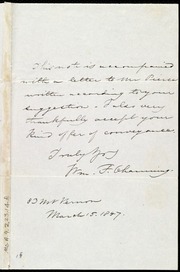 This note is accompanied
with a letter to Mr Peirce
written according to your
suggestion. I also very
thankfully accept your
kind offer of conveyance.
Truly Yrs
Wm. F. Channing.
83 Mt Vernon
March 15. 1847.